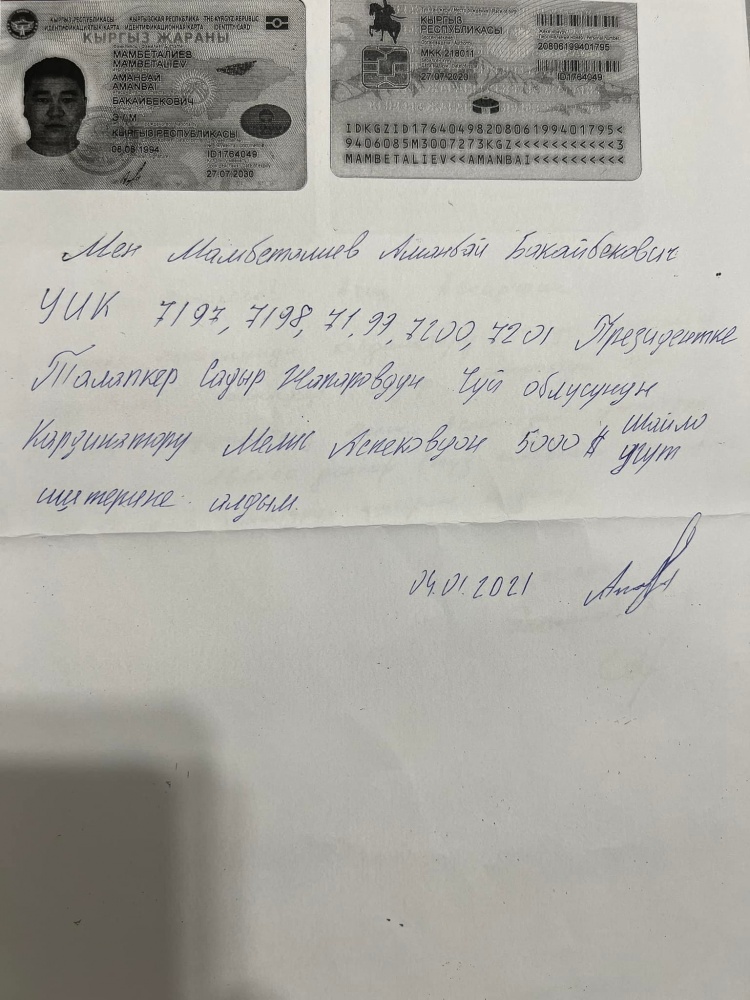 КЫРГЫЗ РЕСПУБЛИКАСЫ КЫРГЫЗСКАЯ РЕСПУБЛИКА THE KYRGYZ REPUBLIC
ИДЕНТИФИКАЦИЯЛЫК КАРТА ИДЕНТИФИКАЦИОННАЯ КАРТА IDENTITY CARD
КЫРГЫЗ ЖАРАНЫ
МАМБЕТАЛИЕВ
MAMBETALIEV
АМАНБАЙ
AMANBAI
БАКАЙБЕКОВИЧ
Э / M
КЫРГЫЗ РЕСПУБЛИКАСЫ
08.06.1994
ID1764049
27.07.2030
КЫРГЫЗ
РЕСПУБЛИКАСЫ
МКК 218011
27.07.2020
20806199401795
ID1764049
IDKGZID1764049820806199401795<
9406085M3007273KGZ<<<<<<<<<<<3
MAMBETALIEV<<AMANBAI<<<<<<<<<<
Мен Мамбеталиев Аманбай Бакайбекович
УИК 7197, 7198, 71,99, 7200, 7201 Президентке
Талапкер Садыр Жапаровдун Чуй облусунун
Кардинатору Мелис Аспековдон 5000 $ Шайло
угут
иштерине алдым.
04.01.2021